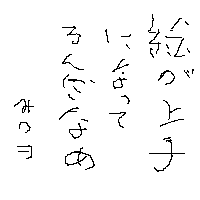 絵が上手
になって
るんだなあ
みつヲ